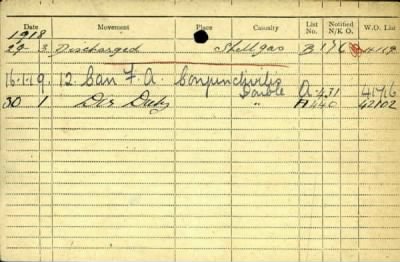 Date Movement Place Casualty List No. Notified N/K O. W.O. List
1918
29 3 Discharged Shellgas B 176
16-1-19. 12 Can F. A. Conjunctivitis
Double A 431 41716
30 1 Dis Duty " A 440 42102